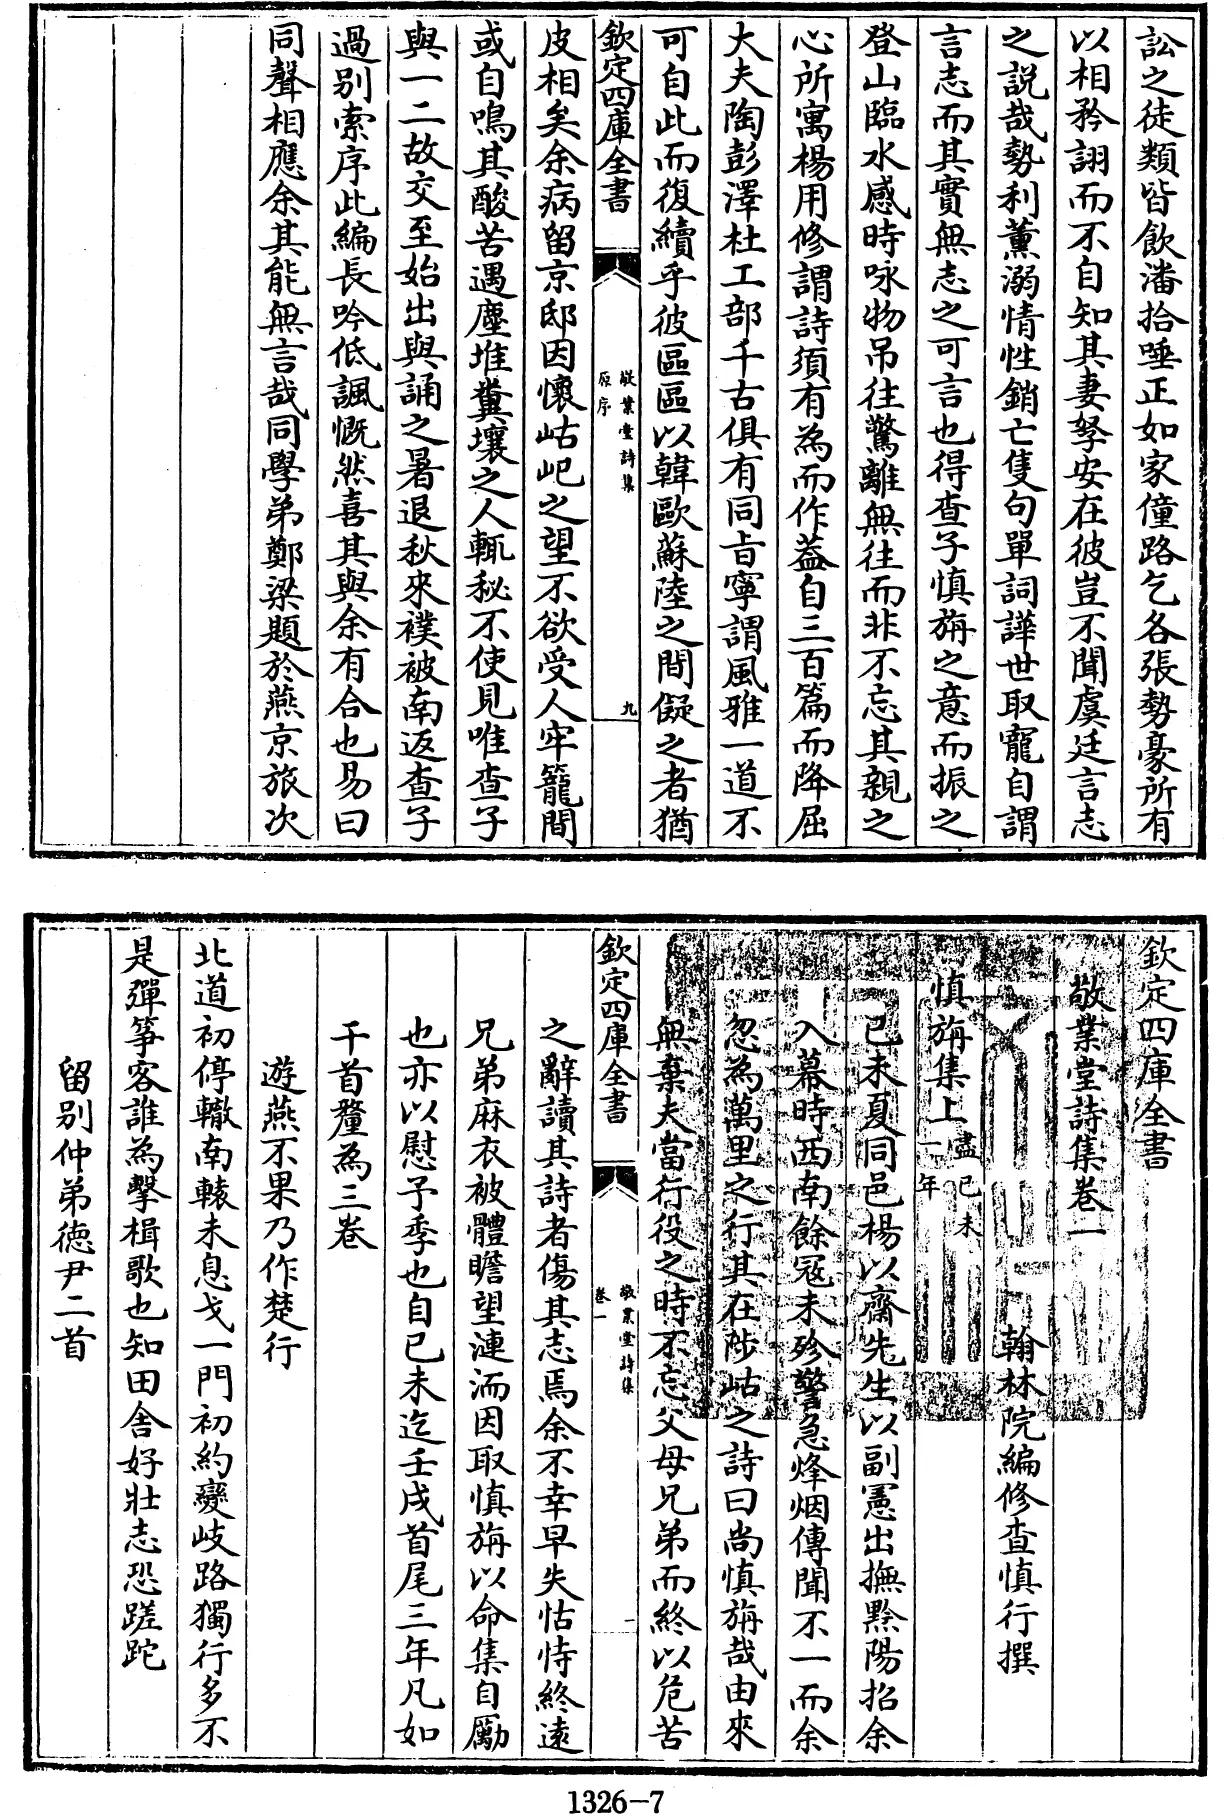 訟之徒類皆飲潘拾唾正如家僮路乞各張勢豪所有
以相矜詡而不自知其妻孥安在彼豈不聞虞廷言志
之説哉勢利薰溺情性銷亡隻句單詞譁世取寵自謂
言志而其實無志之可言也得查子慎旃之意而振之
登山臨水感時咏物吊往驚離無往而非不忘其親之
心所寓楊用修謂詩須有為而作葢自三百篇而降屈
大夫陶彭澤杜工部千古俱有同㫖寧謂風雅一道不
可自此而復續乎彼區區以韓歐蘇陸之間儗之者猶
欽定四庫全書
敬業堂詩集
原序
九
皮相矣余病留京邸因懷岵屺之望不欲受人牢籠間
或自鳴其酸苦遇塵堆糞壤之人輒秘不使見唯查子
與一二故交至始出與誦之暑退秋來襆被南返查子
過别索序此編長吟低諷慨然喜其與余有合也易曰
同聲相應余其能無言哉同學弟鄭梁題於燕京旅次
欽定四庫全書
敬業堂詩集卷一
翰林院編修查慎行撰
慎旃集上 盡己未一年
己未夏同邑楊以齋先生以副憲出撫黔陽招余
入幕時西南餘冦未殄警急烽烟傳聞不一而余
忽為萬里之行其在陟岵之詩曰尚慎旃哉由來
無棄夫當行役之時不忘父母兄弟而終以危苦
欽定四庫全書
敬業堂詩集
卷一
一
之辭讀其詩者傷其志焉余不幸早失怙恃終遠
兄弟麻衣被體瞻望漣洏因取慎旃以命集自勵
也亦以慰予季也自己未迄壬戌首尾三年凡如
干首釐為三卷
遊燕不果乃作楚行
北道初停轍南轅未息戈一門初約變岐路獨行多不
是彈筝客誰為擊楫歌也知田舍好壯志恐蹉跎
留别仲弟德尹二首
1326—7